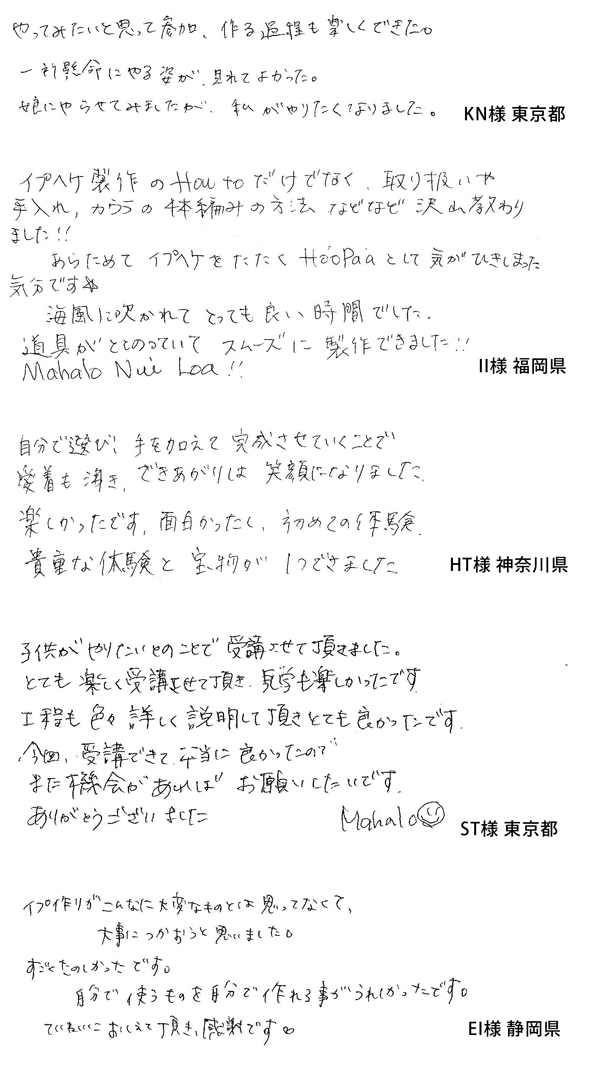 やってみたいと思って参加、作る過程も楽しくできた。
一所懸命にやる姿が、見れてよかった。
娘にやらせてみましたが、私がやりたくなりました。
KN様 東京都
イプヘケ製作のHow toだけでなく、取り扱いや
手入れ,カウラの4本編みの方法 などなど沢山教わり
ました!!
あらためて イプヘケをたたく Ho'oPa'aとして気がひきしまった
気分です☆
海風に吹かれて とっても良い時間でした.
道具がととのっていて スムーズに製作できました!!
Mahalo Nui Loa!!
II様 福岡県
自分で選び、手を加えて完成させていくことで
愛着も沸き、できあがりは 笑顔になりました.
楽しかったです, 面白かったし、初めての体験.
貴重な体験と 宝物が 1つできました
HT様 神奈川県
子供がやりたいとのことで受講させて頂きました。
とても楽しく受講させて頂き、見学も楽しかったです
工程も色々詳しく説明して頂きとても良かったです.
今回、受講できて、本当に良かったので
また機会があれば お願いしたいです.
ありがとうございました
Mahalo
ST様 東京都
イプ作りがこんなに大変なものとは思ってなくて、
大事につかおうと思いました。
すごくたのしかったです。
自分で使うものを自分で作れる事がうれしかったです。
ていねいにおしえて頂き、感謝です。
EI様 静岡県